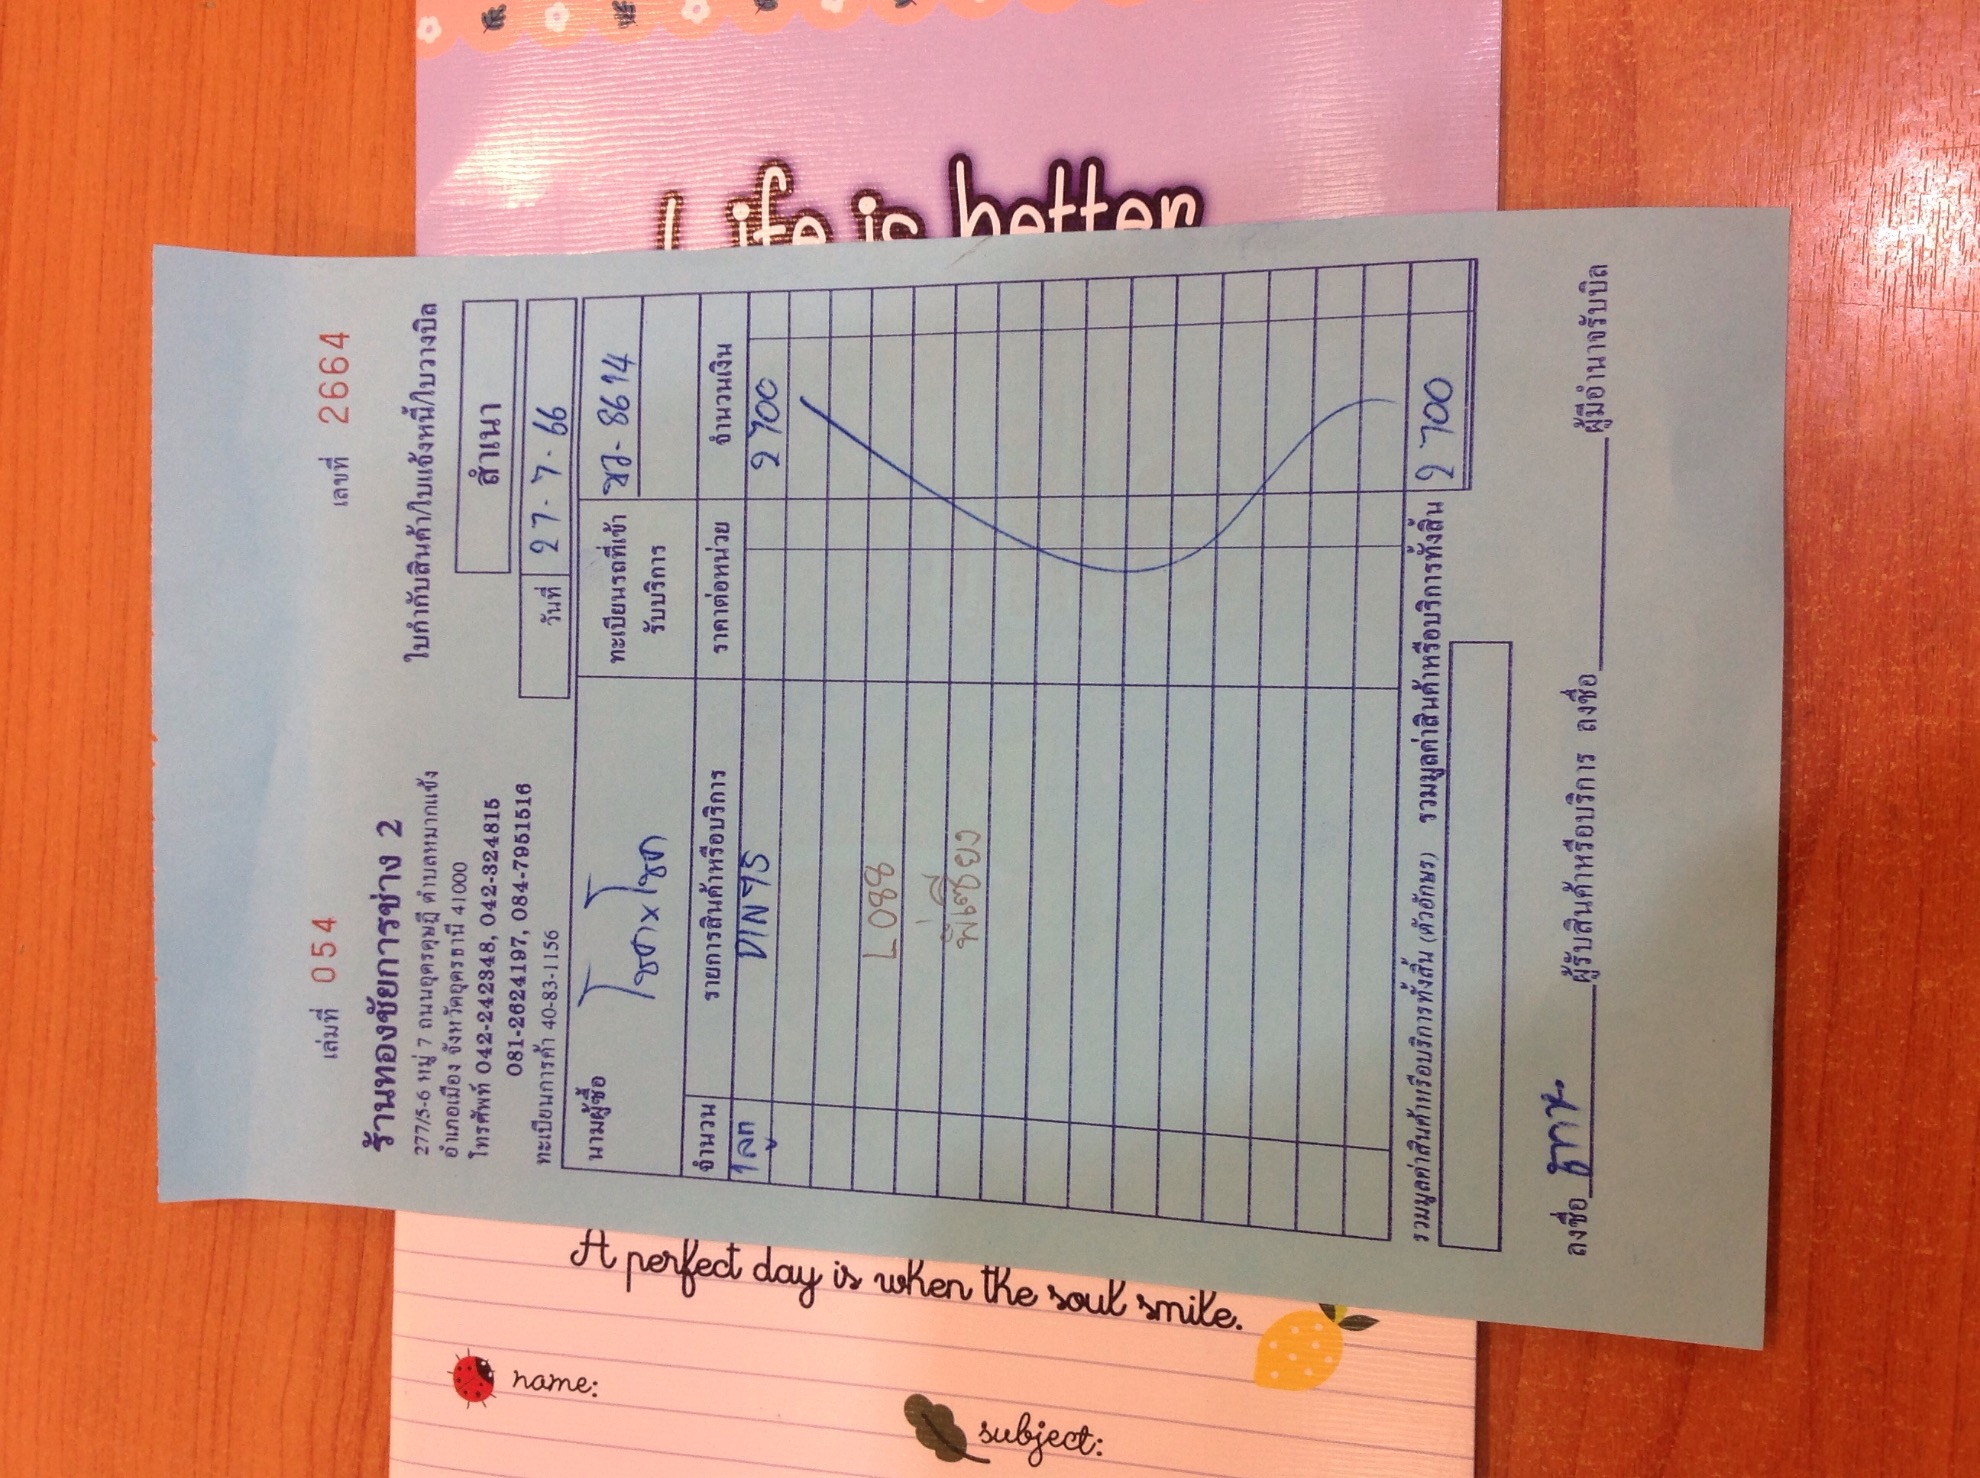 Life is better
เล่มที่ 054
เลขที่ 2664
ร้านทองชัยการช่าง 2
ใบกำกับสินค้า/ใบแจ้งหนี้/ใบวางบิล
277/5-6 หมู่ 7 ถนนอุดรดุษฎี ตำบลหมากแข้ง
อำเภอเมือง จังหวัดอุดรธานี 41000
สำเนา
โทรศัพท์ 042-242348, 042-324815
081-2624197, 084-7951516
วันที่ 27-7-66
ทะเบียนการค้า 40-83-1156
นามผู้ซื้อ โชคxโชค
ทะเบียนรถที่เข้ารับบริการ 8614
จำนวน รายการสินค้าหรือบริการ ราคาต่อหน่วย จำนวนเงิน
1ลูก DIN75 2700
L088
พี่เชียง
รวมมูลค่าสินค้าหรือบริการทั้งสิ้น (ตัวอักษร) รวมมูลค่าสินค้าหรือบริการทั้งสิ้น 2700
ลงชื่อ ผู้รับสินค้าหรือบริการ ลงชื่อ ผู้มีอำนาจรับบิล
A perfect day is when the soul smile.
name:
subject: